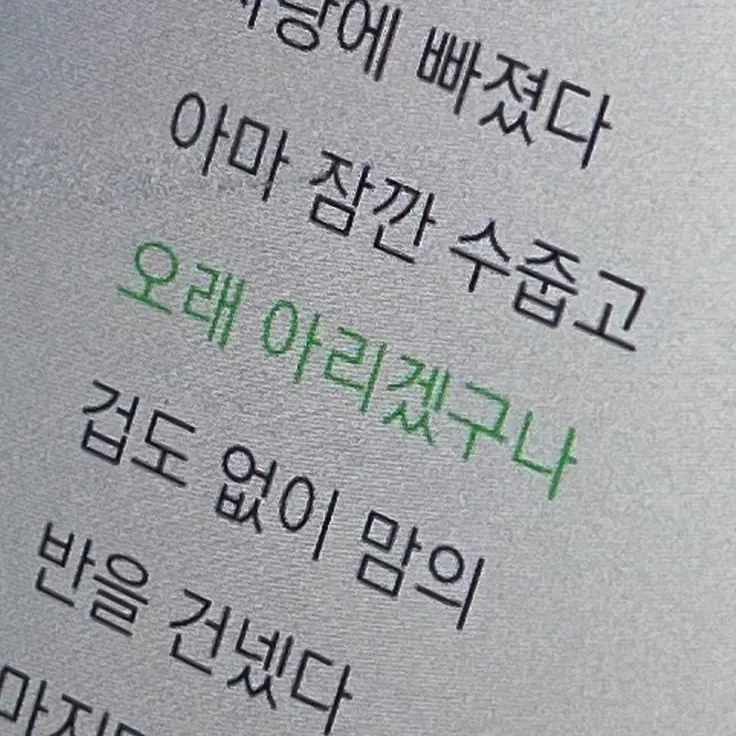 빠졌다
아마 잠깐 수줍고
오래 아리겠구나
겁도 없이 맘의
반을 건넸다